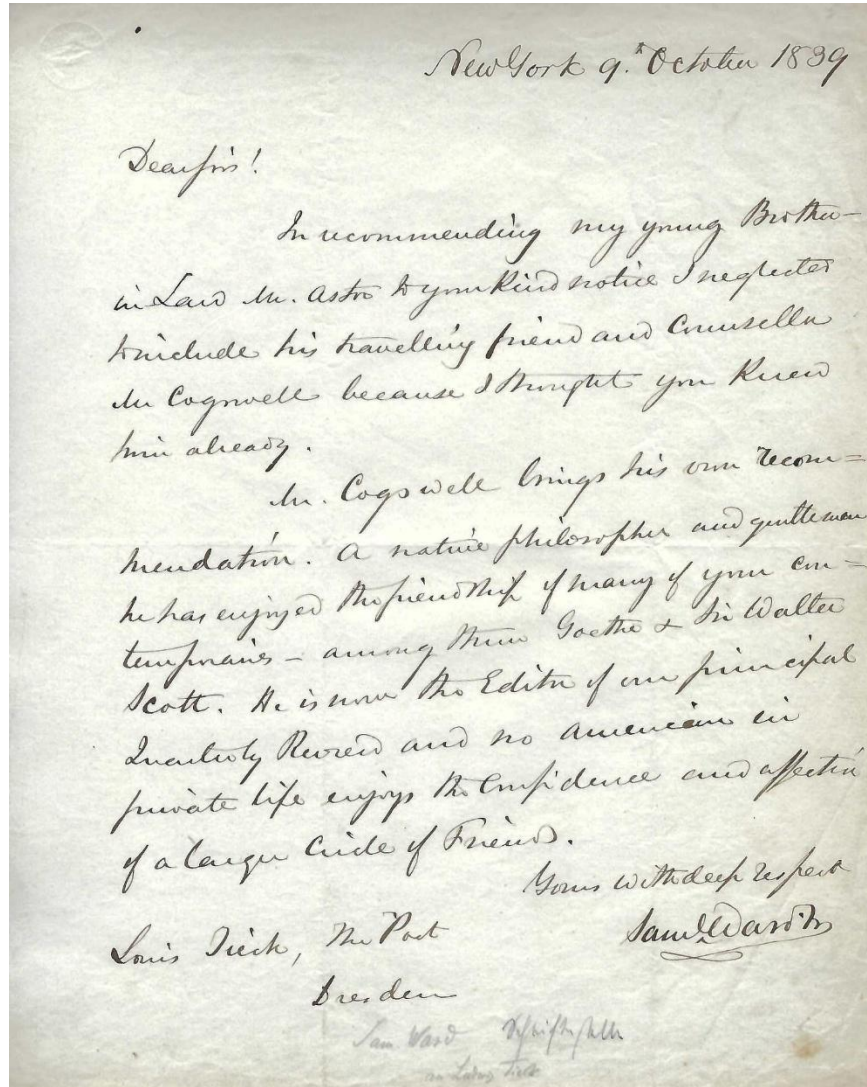 New York 9.th October 1839
Dear Sir!
In recommending my young Brother-
in Law Mr. Astor to your Kind notice I neglected
to include his travelling friend and Counsellor
Mr Cogswell because I thought you Knew
him already.
Mr. Cogswell brings his own recom=
mendation. A native philosopher and gentleman
he has enjoyed the friendship of many of your con=
temporaries – among them Goethe & Sir Walter
Scott. He is now the Editor of our principal
Quarterly Review and no American in
private life enjoys the Confidence and affection
of a larger Circle of Friends.
Yours with deep respect
Saml Ward Jr
Louis Tieck, The Poet
Dresden
Sam. Ward Schriftsteller
an Ludwig Tieck